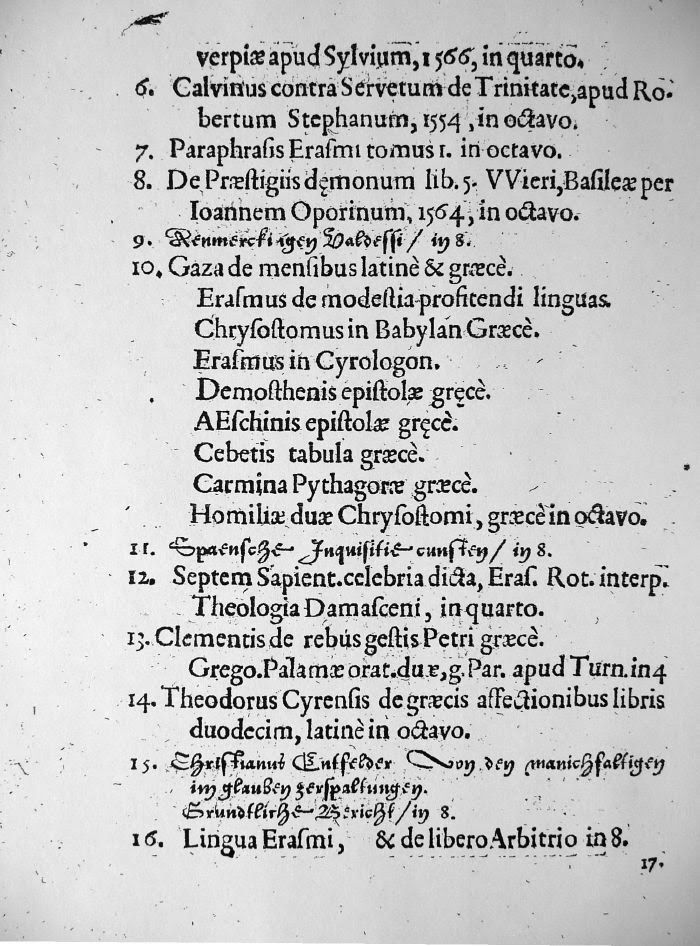 verpiæ apud Sylvium, 1566, in quarto.
6. Calvinus contra Servetum de Trinitate, apud Ro-
bertum Stephanum, 1554, in octavo.
7. Paraphraſis Eraſmi tomus 1. in octavo.
8. De Præſtigiis dęmonum lib. 5. VVieri, Baſileæ per
Ioannem Oporinum, 1564, in octavo.
9. Renmerckingen Valdeſſi / in 8.
10. Gaza de menſibus latinè & græcè.
Eraſmus de modeſtia profitendi linguas.
Chryſoſtomus in Babylan Græcè.
Eraſmus in Cyrologon.
Demoſthenis epiſtolæ gręcè.
AEſchinis epiſtolæ gręcè.
Cebetis tabula græcè.
Carmina Pythagoræ græcè.
Homiliæ duæ Chryſoſtomi, græcè in octavo.
11. Spaenſche Inquiſitie cunſten / in 8.
12. Septem Sapient. celebria dicta, Eraſ. Rot. interp.
Theologia Damaſceni, in quarto.
13. Clementis de rebus geſtis Petri græcè.
Grego. Palamæ orat. duæ, g. Par. apud Turn. in 4
14. Theodorus Cyrenſis de græcis affectionibus libris
duodecim, latinè in octavo.
15. Chriſtianus Entfelder Von den manichfaltigen
im glauben zerſpaltungen.
Grundtliche Bericht / in 8.
16. Lingua Eraſmi, & de libero Arbitrio in 8.
17.